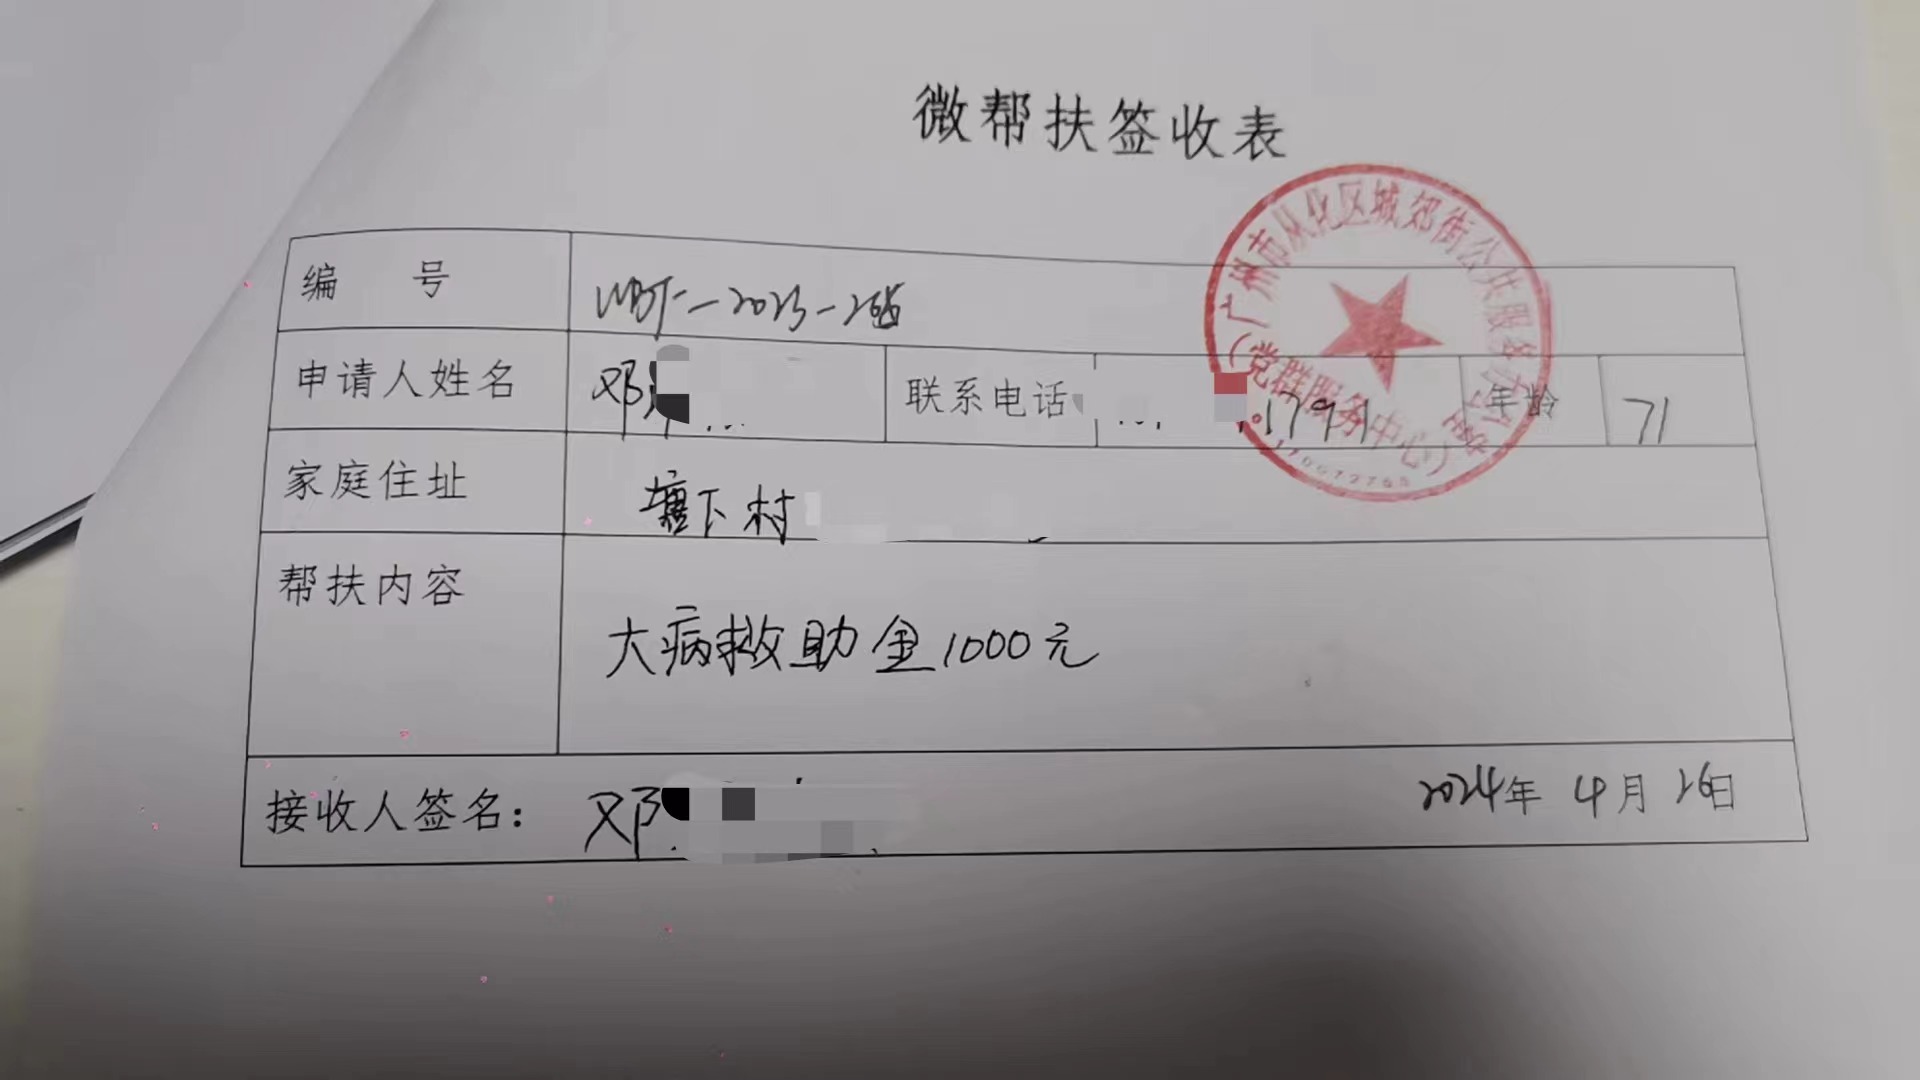 微帮扶签收表
编 号 WBF-2023-268
申请人姓名 邓 联系电话 1791 年龄 71
家庭住址 塘下村
帮扶内容 大病救助金1000元
接收人签名: 邓 2024年 4月 26日
广州市从化区城郊街公共服务办公室
(党群服务中心)